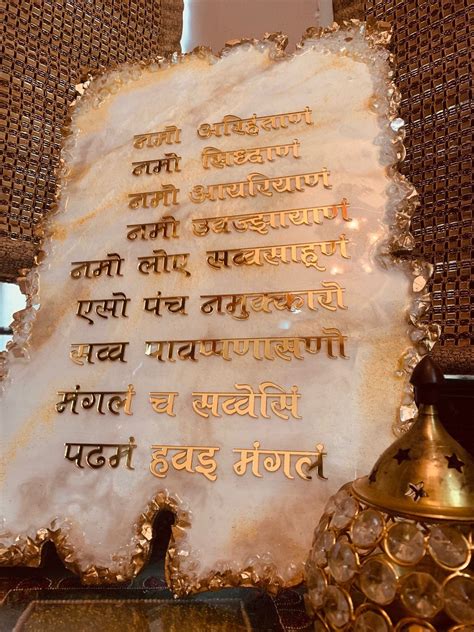 नमो अरिहंताणं
नमो सिध्दाणं
नमो आयरियाणं
नमो उवज्झायाणं
नमो लोए सव्वसाहूणं
एसो पंच नमुक्कारो
सव्व पावप्पणासणो
मंगलं च सव्वेसिं
पढमं हवइ मंगलं